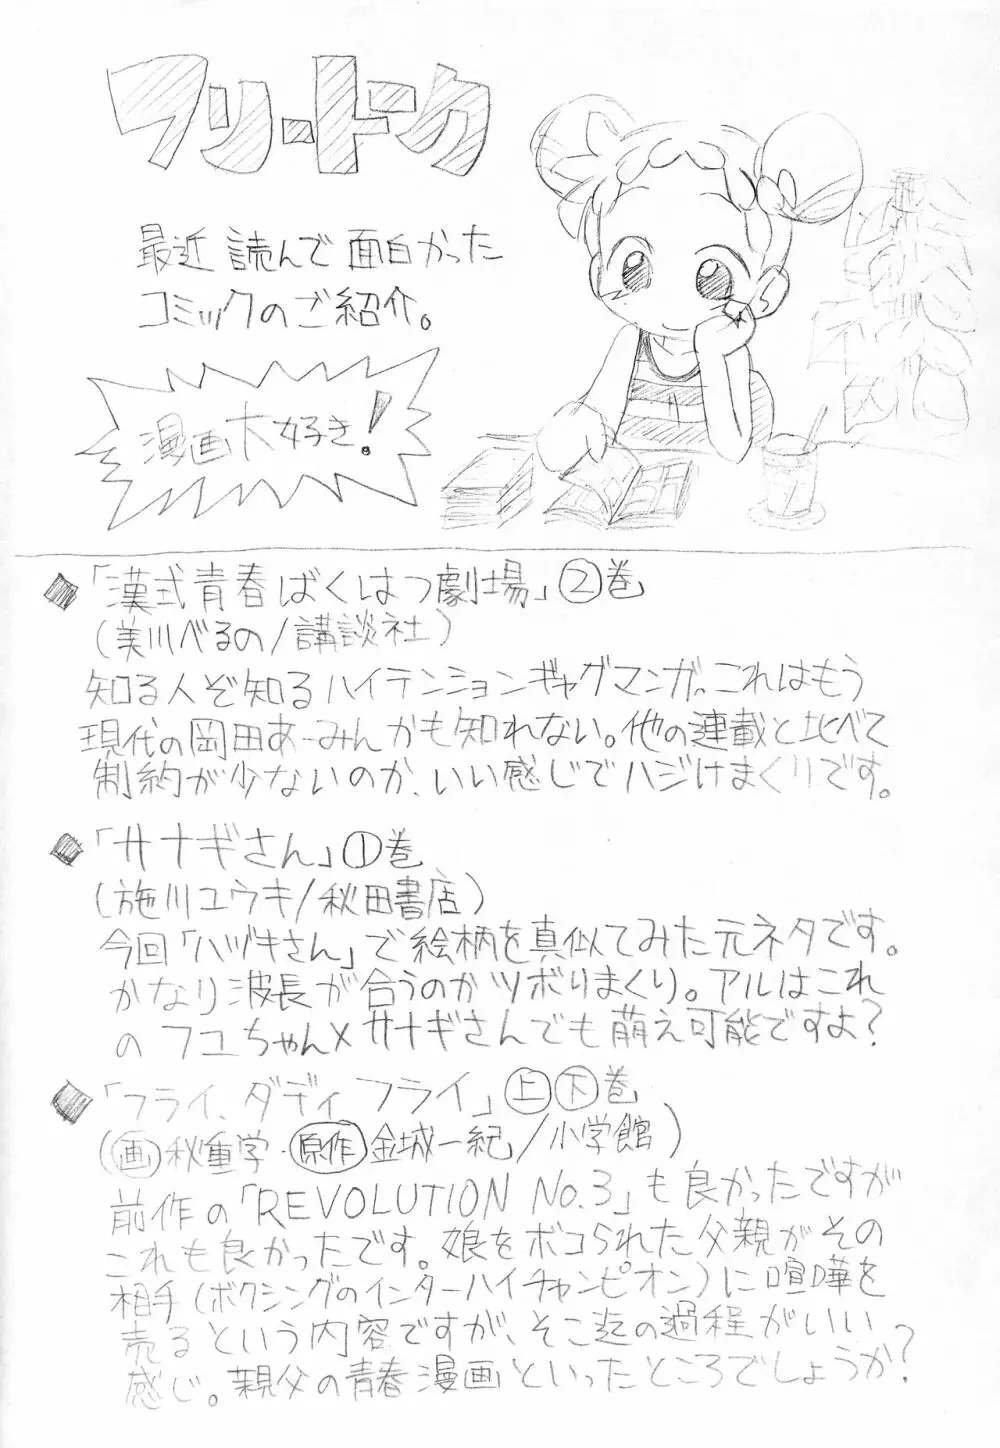 フリートーク
最近 読んで 面白かった
コミックのご紹介。
漫画大好き!
◆「漢式青春ばくはつ劇場」②巻
(美川べるの/講談社)
知る人ぞ知るハイテンションギャグマンガ。これはもう
現代の岡田あーみんかも知れない。他の連載と比べて
制約が少ないのか、いい感じでハジけまくりです。
◆「サナギさん」①巻
(施川ユウキ/秋田書店)
今回「ハヅキさん」で絵柄を真似てみた元ネタです。
かなり波長が合うのかツボりまくり。アルはこれ
のフユちゃん×サナギさんでも萌え可能ですよ?
◆「フライ、ダディ フライ」上下巻
(画 秋重学・原作 金城一紀/小学館)
前作の「REVOLUTION No.3」も良かったですが
これも良かったです。娘をボコられた父親がその
相手(ボクシングのインターハイチャンピオン)に喧嘩を
売るという内容ですが、そこ迄の過程がいい
感じ。親父の青春漫画といったところでしょうか?